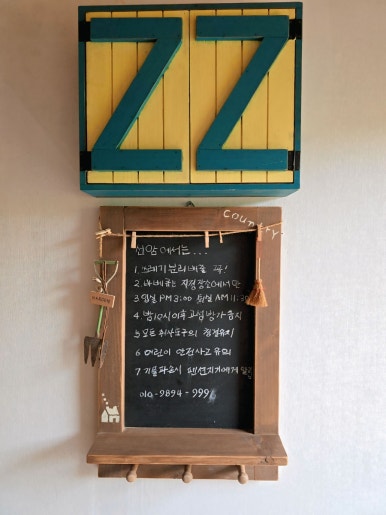 ZZ
country
선암에서는...
1. 쓰레기 분리배출 꼭!
2. 바베큐는 지정장소에서만
3. 입실 PM 3:00 퇴실 AM 11:30
4. 밤 10시이후 고성방가 금지
5. 모든 취사도구의 청결유지
6. 어린이 안전사고 유의
7. 기물파손시 펜션지기에게
010-9894-9991